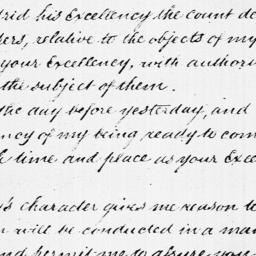 rid his Excellency the count de
pers, relative to the objects of my
your Excellency, with authori
the subject of them.
the day before yesterday, and
ncy of my being ready to com
time and place as your Exce
's character gives me reason t
will be conducted in a man
nd permit me to assure you